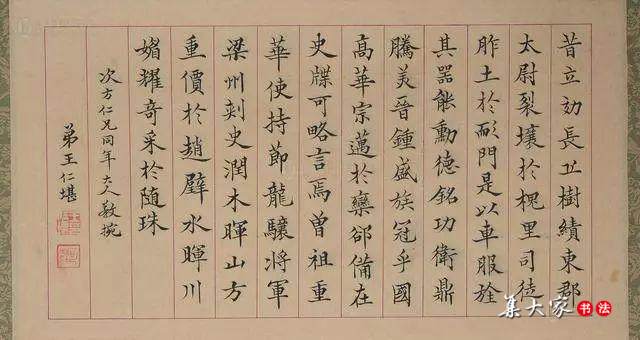 昔立効長丘樹績東郡
太尉裂壤於槐里司徒
胙土於耏門是以車服旌
其器能勳德銘功衛鼎
騰美晉鍾盛族冠乎國
高華宗邁於欒郤備在
史牒可略言焉曾祖重
華使持節龍驤將軍
梁州刺史潤木暉山方
重價於趙璧水暉川
媚耀奇采於隨珠
次方仁兄同年大人教
弟王仁堪
集大家书法